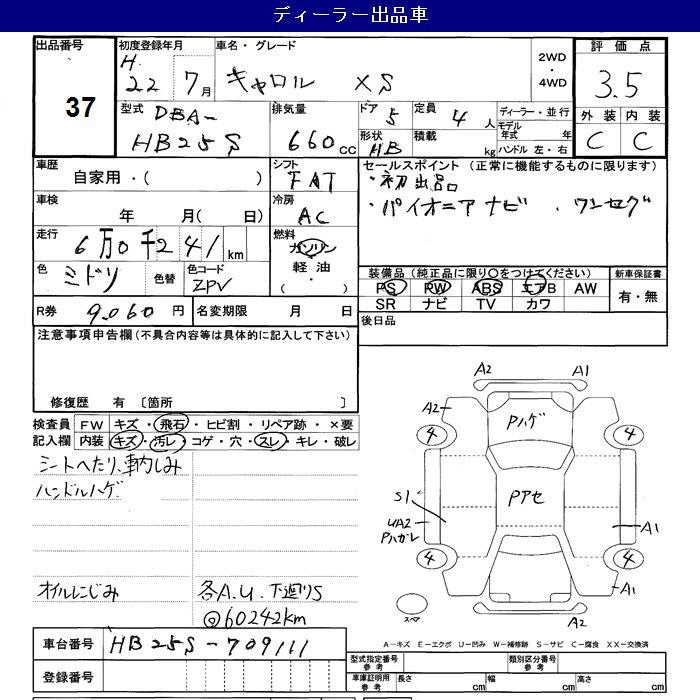 ディーラー出品車
出品番号 37
初度登録年月 H. 22年 7月
車名・グレード キャロル XS
2WD・4WD
評価点 3.5
外装 C 内装 C
型式 DBA- HB25S
排気量 660cc
ドア 5
形状 HB
定員 4人
積載 kg
ディーラー・並行
モデル年式 年
ハンドル 左・右
車歴 自家用・( )
シフト FAT
セールスポイント (正常に機能するものに限ります)
・初出品
・パイオニアナビ . ワンセグ
車検 年 月( 日)
冷房 AC
走行 6万0千241km
燃料 ガソリン・軽油・( )
色 ミドリ
色替
色コード ZPV
装備品(純正品に限り○をつけてください)
PS PW ABS エアB AW
SR ナビ TV カワ
新車保証書 有・無
R券 9,060円
名変期限 月 日
後日品
注意事項申告欄(不具合内容等は具体的に記入して下さい)
修復歴 有 〔箇所 〕
検査員記入欄
FW キズ・飛石・ヒビ割・リペア跡・×要
内装 キズ・汚レ・コゲ・穴・スレ・キレ・破レ
シートへたり、車内しみ
ハンドルハゲ
オイルにじみ
各A.U.下廻りS
@60242km
A2 A1
A2
Pハゲ
4 4
Pアセ
S1
UA2
Pハガレ
A1
4 4
A1
A2
スペア
車台番号 HB25S-709111
登録番号
A-キズ E-エクボ U-凹み W-補修跡 S-サビ C-腐食 XX-交換済
型式指定番号 参考
類別区分番号 参考
車庫証明用 参考 長さ cm 幅 cm 高さ cm